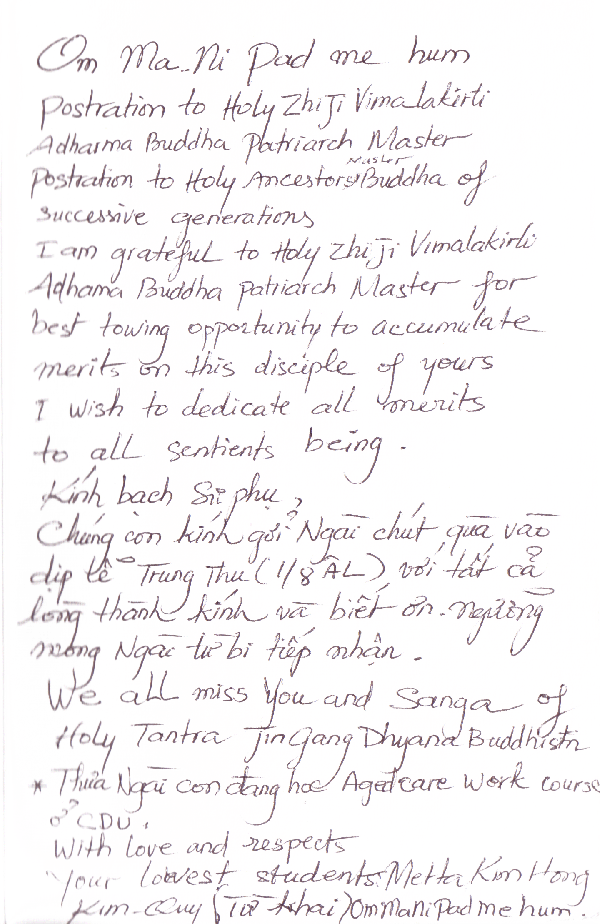 Om Ma-Ni Pad me hum
postration to Holy ZhiJi Vimalakirti
Adharma Buddha Patriarch Master
Postration to Holy Ancestors Master Buddha of
successive generations
I am grateful to Holy Zhi Ji Vimalakirti
Adhama Buddha patriarch Master for
best towing opportunity to accumulate
merits on this disciple of yours
I wish to dedicate all merits
to all sentients being.
Kính bạch Sư phụ,
Chúng con kính gởi Ngài chút quà vào
dịp lễ Trung Thu (1/8 ÂL) với tất cả
lòng thành kính và biết ơn. ngưỡng
mong Ngài từ bi tiếp nhận.
We all miss You and Sanga of
Holy Tantra JinGang Dhyana Buddhism
* Thưa Ngài con đang học Aged care Work course
ở CDU.
With love and respects
Your lowest students: Metta Kim Hong
Kim-Quy (Từ Khai) Om Ma Ni Pad me hum.